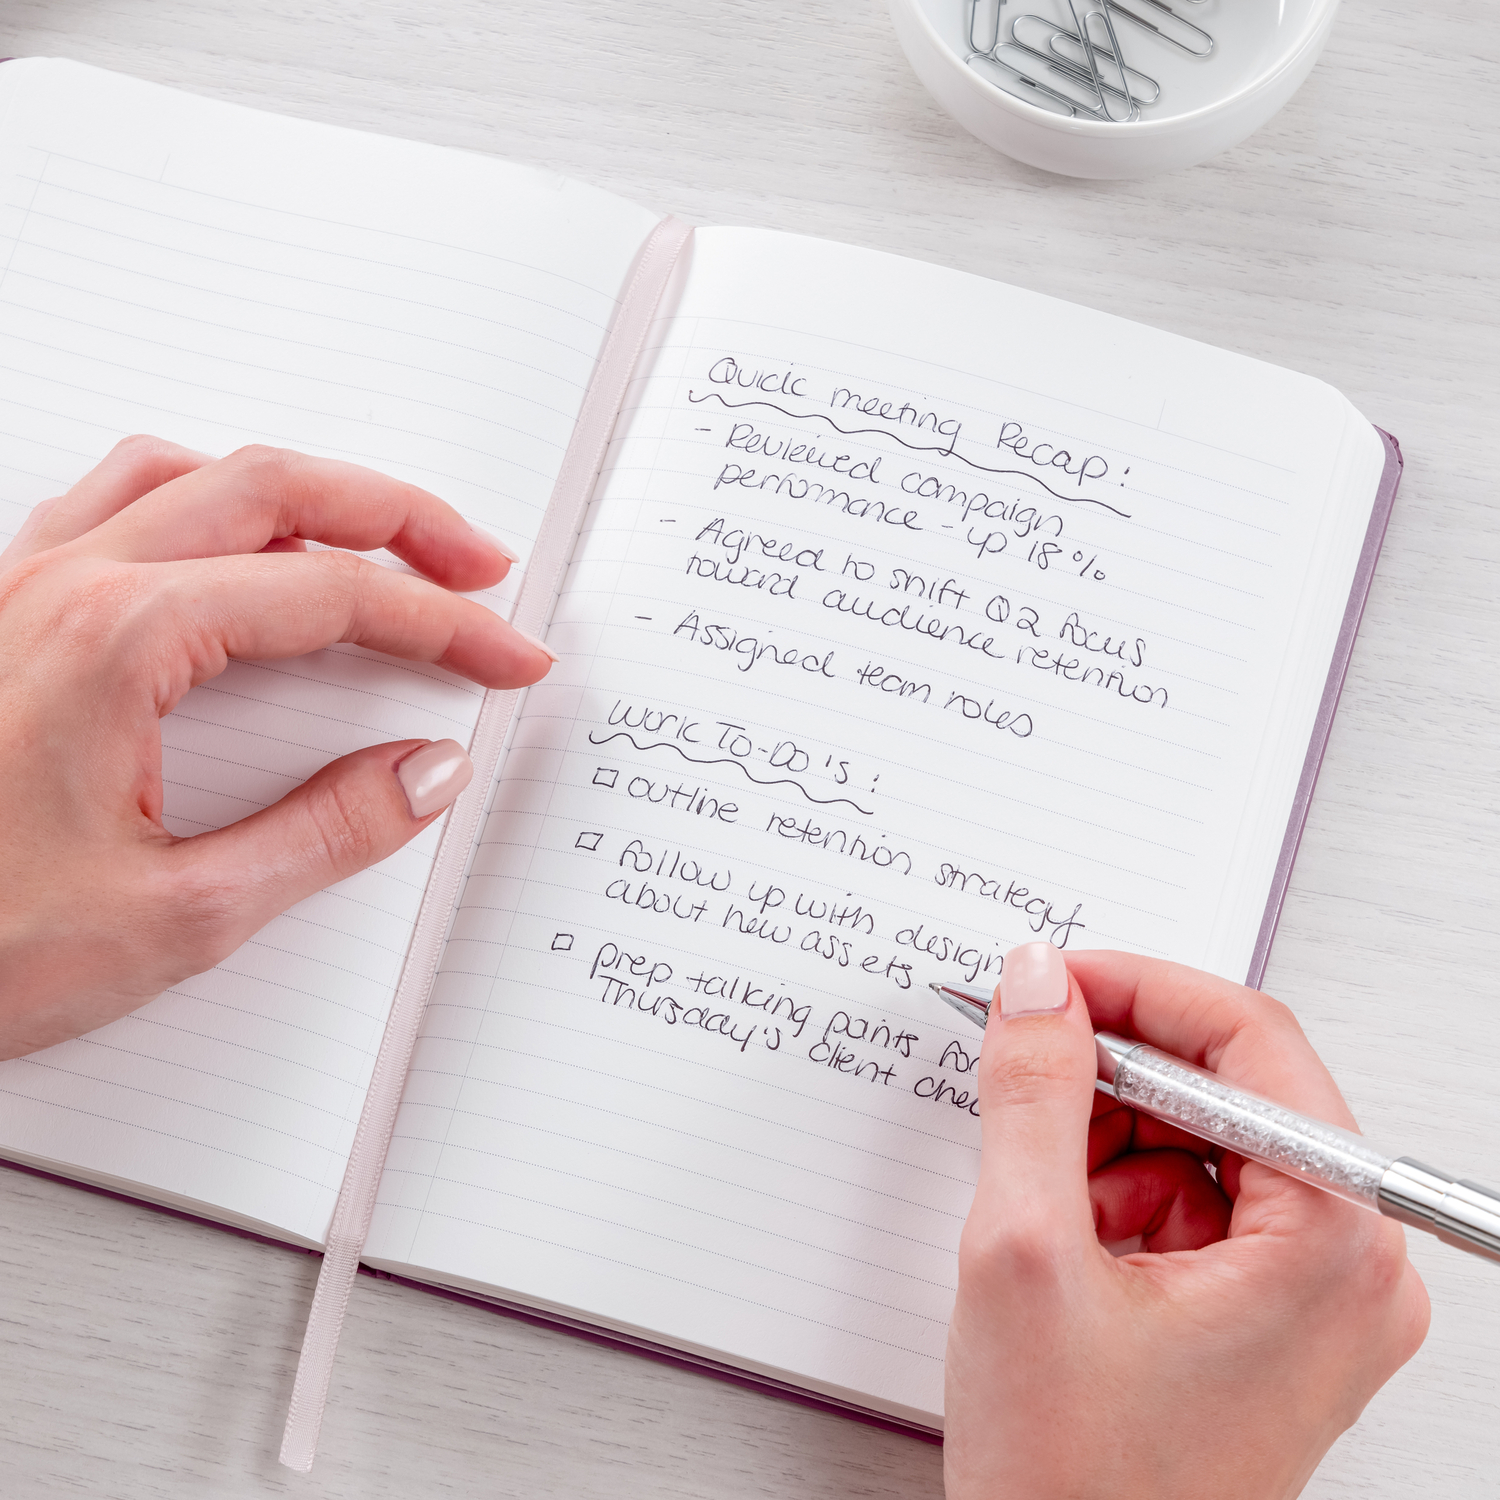 Quick meeting Recap:
- Reviewed campaign
performance - up 18%
- Agreed to shift Q2 focus
toward audience retention
- Assigned team roles
Work To-Do's:
□ outline retention strategy
□ follow up with design
about new assets
□ prep talking points for
Thursday's client